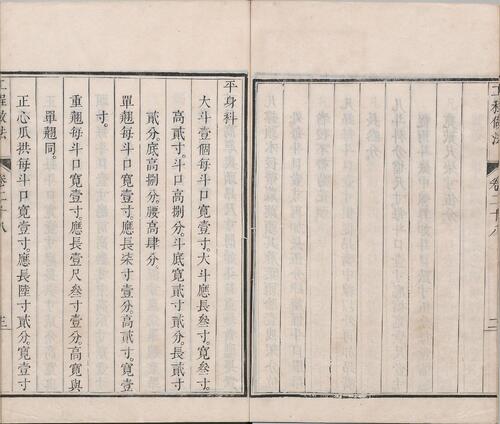 工程做法
卷二十八
二
平身科
大斗壹個每斗口寬壹寸。大斗應長叁寸。寬叁寸。
高貳寸。斗口高捌分。斗底寬貳寸貳分。長貳寸
貳分底高捌分。腰高肆分。
單翹每斗口寬壹寸。應長柒寸壹分。高貳寸。寬壹
寸。
重翹每斗口寬壹寸。應長壹尺叁寸壹分。高寬與
單翹同。
正心瓜拱每斗口寬壹寸。應長陸寸貳分。寬壹寸
工程做法
卷二十八
三